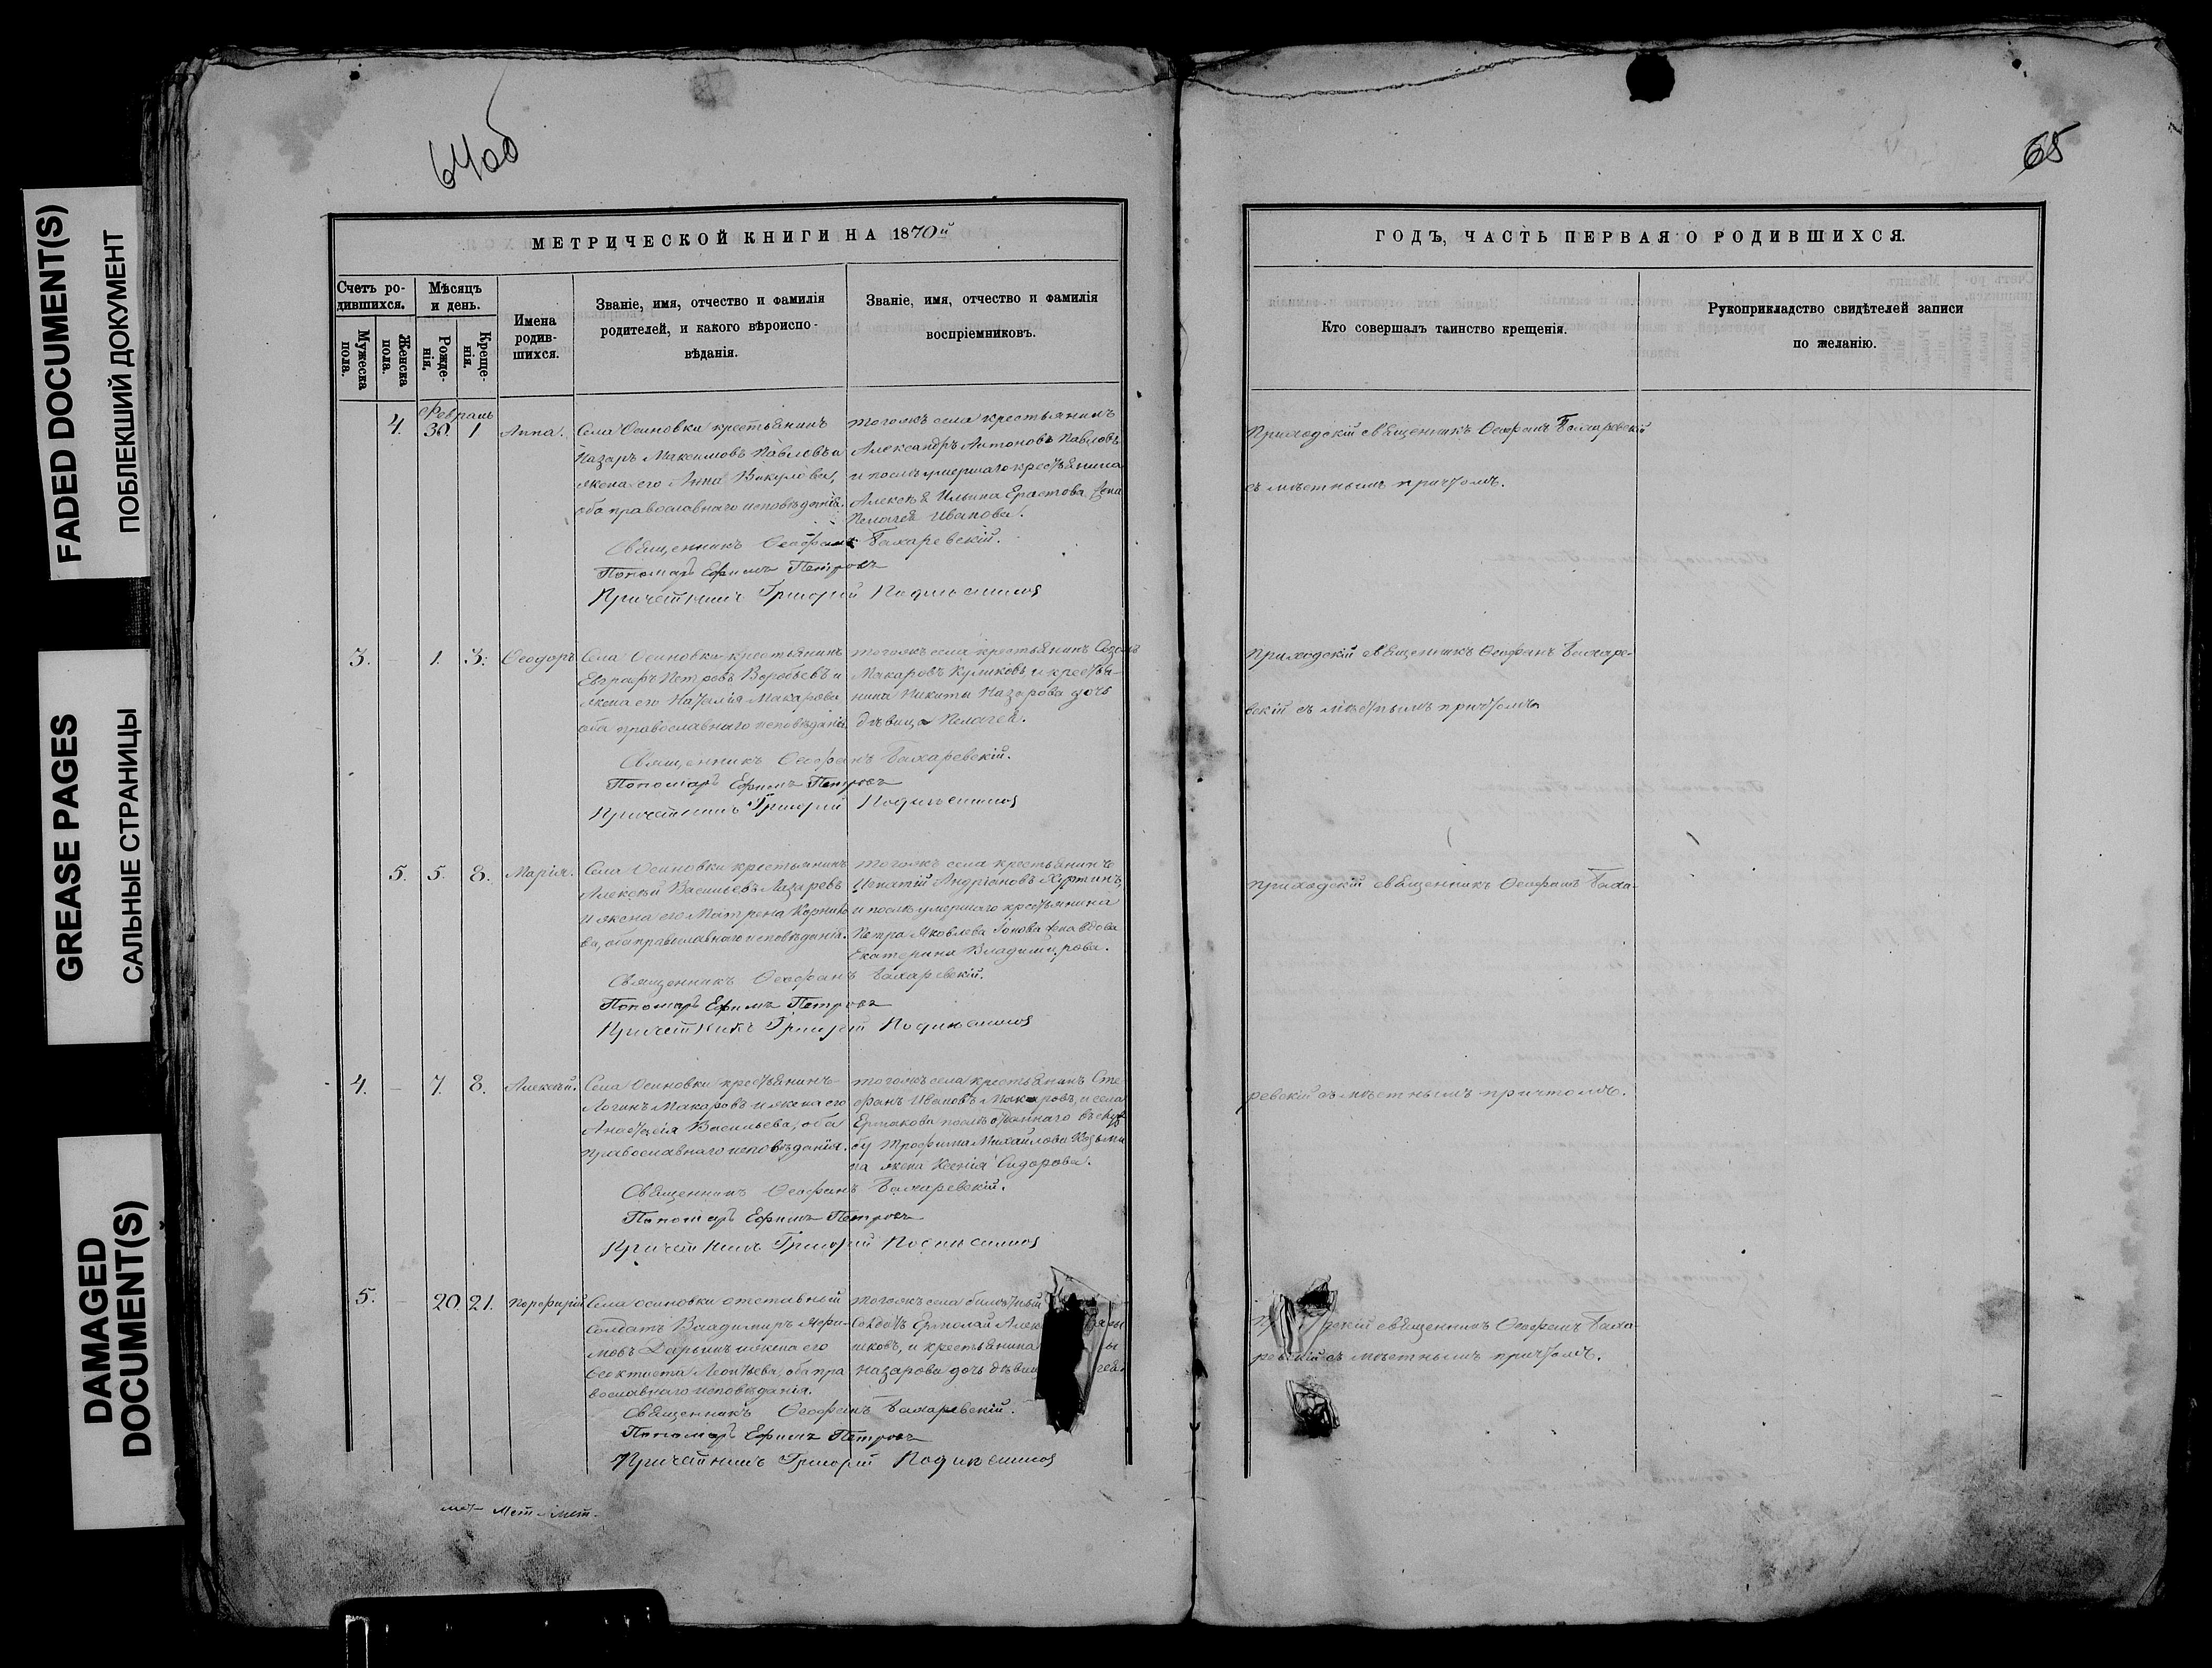 FADED DOCUMENT(S)
ПОБЛЕКШИЙ ДОКУМЕНТ
GREASE PAGES
САЛЬНЫЕ СТРАНИЦЫ
DAMAGED
DOCUMENT(S)
64об
МЕТРИЧЕСКОЙ КНИГИ НА 1870й
Счетъ ро-
дившихся.
Мужеска
пола.
Женска
пола.
Мѣсяцъ
и день.
Рожде-
нія.
Креще-
нія.
Имена
родив-
шихся.
Званіе, имя, отчество и фамилія
родителей, и какого вѣроиспо-
вѣданія.
Званіе, имя, отчество и фамилія
воспріемниковъ.
Февраль
4. 30. 1 Анна.
Села Осиновки крестьянинъ
Назаръ Максимовъ Павловъ и
жена его Анна Викулова,
оба православнаго исповѣданія.
тогожъ села крестьянинъ
Александръ Антоновъ Павловъ
и послѣ умершаго крестьянина
Алексѣя Ильина Ерастова жена
Пелагея Иванова.
Священникъ Ѳеофанъ Бахаревскій.
Пономарь Ефимъ Петровъ
Причетникъ Григорій
3. – 1. 3. Ѳеодоръ
Села Осиновки крестьянинъ
Евграфъ Петровъ Воробьевъ и
жена его Наталія Макарова
оба православнаго исповѣданія.
тогожъ села крестьянинъ
Макаровъ Куликовъ и крестья-
нина Никиты Назарова дочь
дѣвица Пелагея.
Священникъ Ѳеофанъ Бахаревскій.
Пономарь Ефимъ Петровъ
Причетникъ Григорій
5. 5. 8. Марія.
Села Осиновки крестьянинъ
Алексѣй Васильевъ Лазаревъ
и жена его Матрена
ва, оба православнаго исповѣданія.
тогожъ села крестьянинъ
Игнатій Андріановъ
и послѣ умершаго крестьянина
Петра Яковлева жена вдова
Екатерина Владимирова.
Священникъ Ѳеофанъ Бахаревскій.
Пономарь Ефимъ Петровъ
Причетникъ Григорій
4. – 7. 8. Алексѣй.
Села Осиновки крестьянинъ
Логинъ Макаровъ и жена его
Анастасія Васильева, оба
православнаго исповѣданія.
тогожъ села крестьянинъ Сте-
фанъ Ивановъ Макаровъ, и села
Ермакова послѣ отданнаго въ служ
бу Трофима Михайлова Козьми
на жена Ксенія Сидорова.
Священникъ Ѳеофанъ Бахаревскій.
Пономарь Ефимъ Петровъ
Причетникъ Григорій
5. – 20. 21. Порфирій
Села Осиновки отставный
солдатъ Владимиръ Ефи-
мовъ Ларьинъ и жена его
Ѳеоктиста Леонтьева, оба пра
вославнаго исповѣданія.
тогожъ села билетный
солдатъ Ермолай
и крестьянина
Назарова дочь
Священникъ Ѳеофанъ Бахаревскій.
Пономарь Ефимъ Петровъ
Причетникъ Григорій
65
ГОДЪ, ЧАСТЬ ПЕРВАЯ О РОДИВШИХСЯ.
Кто совершалъ таинство крещенія.
Рукоприкладство свидѣтелей записи
по желанію.
Приходскій священникъ Ѳеофанъ Бахаревскій
съ мѣстнымъ причтомъ.
Приходскій священникъ Ѳеофанъ Бахаре-
вскій съ мѣстнымъ причтомъ
Приходскій священникъ Ѳеофанъ Баха-
ревскій съ мѣстнымъ причтомъ.
священникъ Ѳеофанъ Баха-
ревскій съ мѣстнымъ причтомъ.